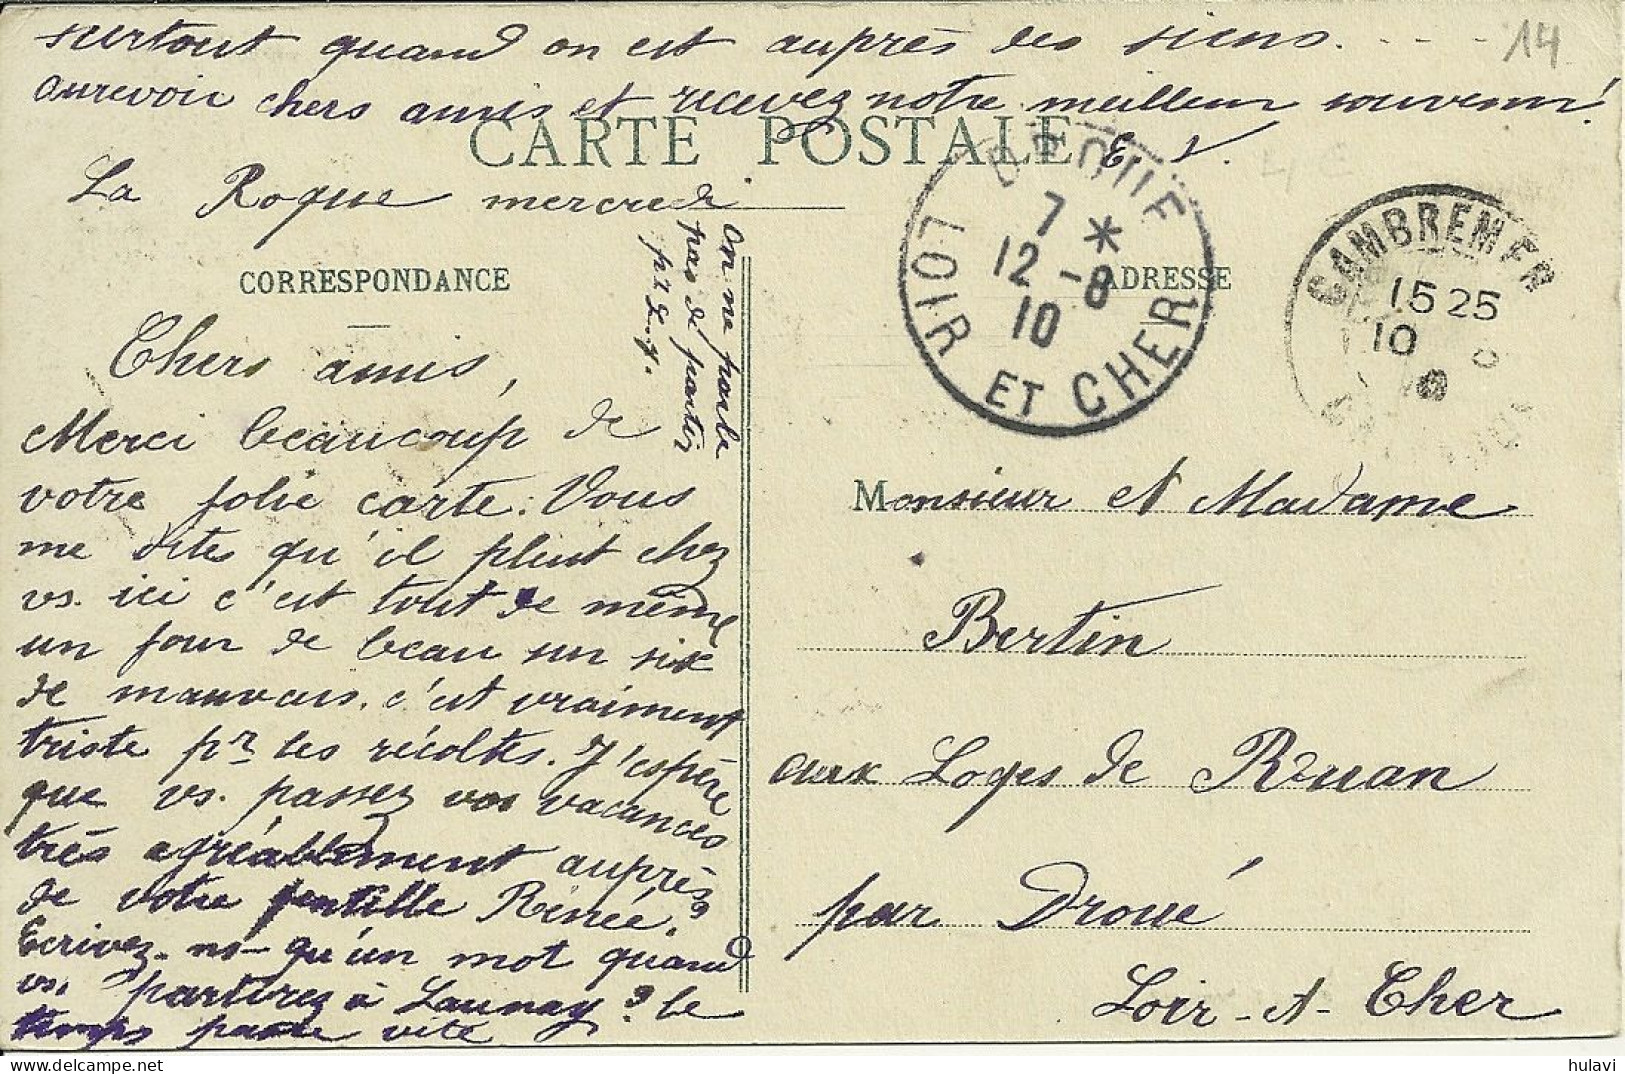 surtout quand on est auprès des siens. - - -
14
aurevoir chers amis et recevez notre meilleur souvenir!
CARTE POSTALE
E. V.
La Roque mercredi
on ne parle
pas de partir
pr L. V.
CORRESPONDANCE
ADRESSE
DROUÉ
7 *
12 -8
10
LOIR ET CHER
CAMBREMER
15 25
10 8
Chers amis,
Merci beaucoup de
votre jolie carte. Vous
me dites qu'il pleut chez
vs. ici c'est tout de même
un jour de beau sur six
de mauvais. c'est vraiment
triste pr les récoltes. J'espère
que vs. passez vos vacances
très agréablement auprès
de votre gentille Renée.
Ecrivez-ns- qu'un mot quand
vs. partirez à Launay? le
temps passe vite
Monsieur et Madame
Bertin
aux Loges de Ruan
par Droué
Loir-et-Cher
hulavi